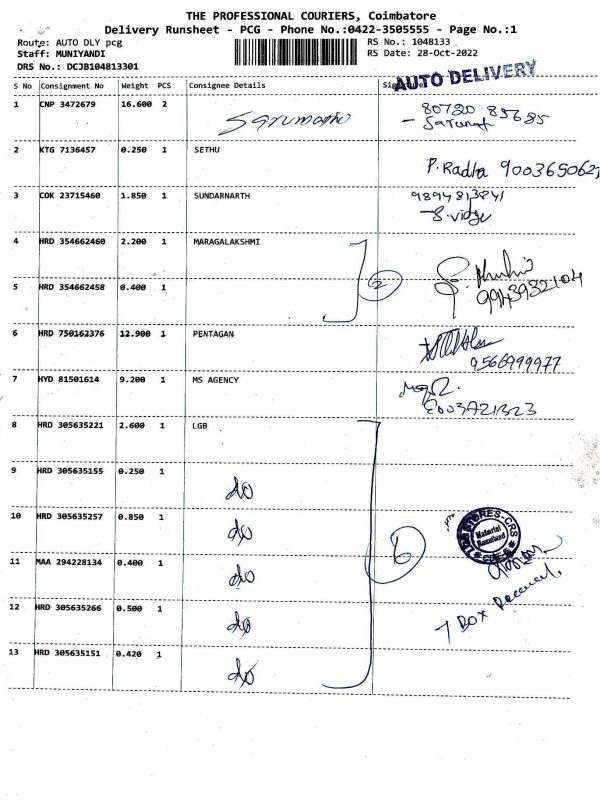 THE PROFESSIONAL COURIERS, Coimbatore
Delivery Runsheet - PCG - Phone No.:0422-3505555 - Page No.:1
Route: AUTO DLY pcg RS No.: 1048133
Staff: MUNIYANDI RS Date: 28-Oct-2022
DRS No.: DCJB104813301
AUTO DELIVERY
S No Consignment No Weight PCS Consignee Details
1 CNP 3472679 16.600 2 80720 85685
2 KTG 7136457 0.250 1 SETHU P. Radha
3 COK 23715460 1.850 1 SUNDARNARTH
4 HRD 354662460 2.200 1 MARAGALAKSHMI
5 HRD 354662458 0.400 1
2
6 HRD 750162376 12.900 1 PENTAGAN
9566999977
7 HYD 81501614 9.200 1 MS AGENCY
8 HRD 305635221 2.600 1 LGB
9 HRD 305635155 0.250 1 do
10 HRD 305635257 0.850 1 do
11 MAA 294228134 0.400 1 do
6
12 HRD 305635266 0.500 1 do
13 HRD 305635151 0.420 1 do
STORES-CRS
Material Received
7 Box Received